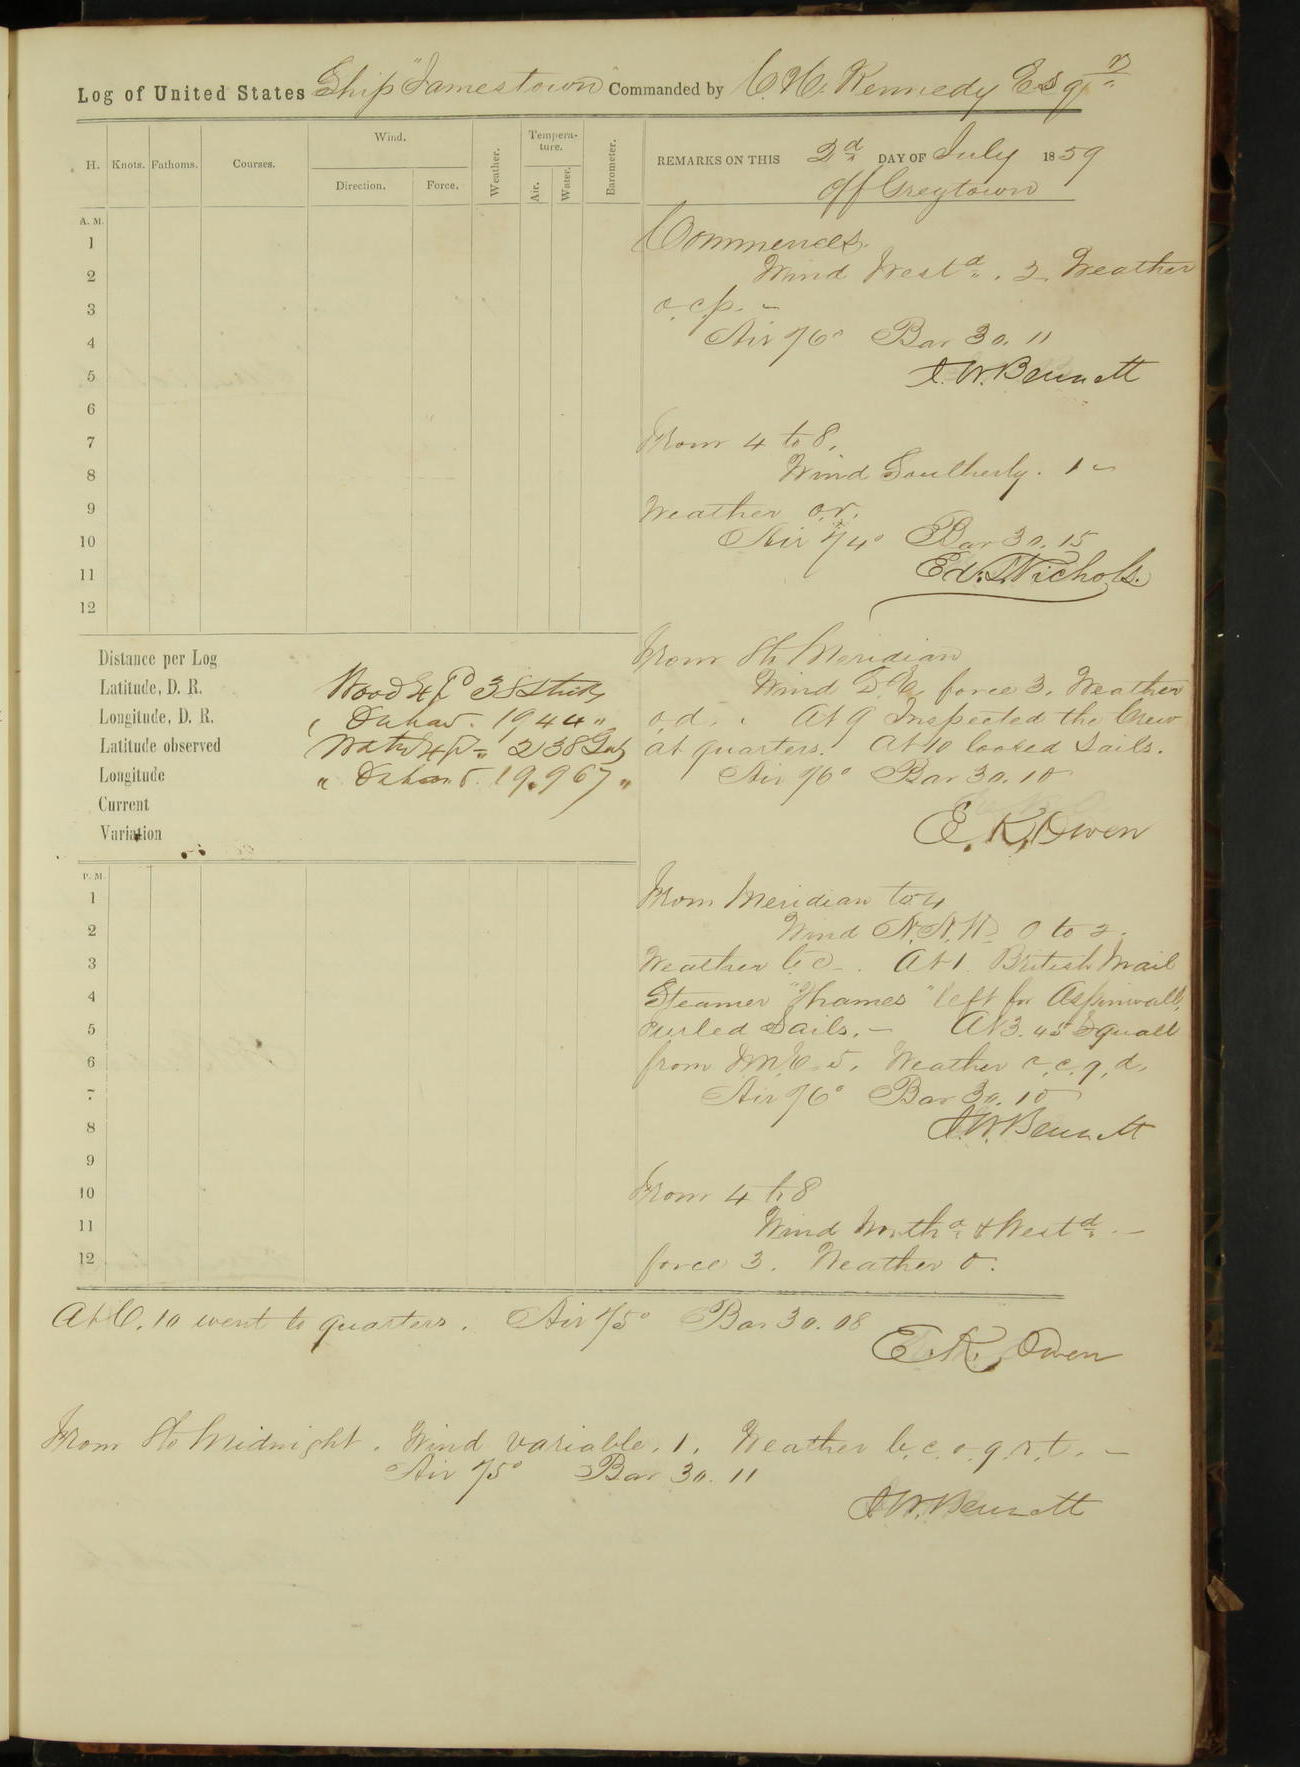 Log of United States Ship "Jamestown" Commanded by C. H. Kennedy Esqr
H. Knots. Fathoms. Courses. Wind. Direction. Force. Weather. Tempera-ture. Air. Water. Barometer.
REMARKS ON THIS 2d DAY OF July 1859
off Greytown
A. M.
1
2
3
4
5
6
7
8
9
10
11
12
Commences.
Wind Westd. 2. Weather
o.c.p. –
Air 76° Bar 30.11
J. W. Bennett
From 4 to 8.
Wind Southerly. 1 –
Weather o.r.
Air 74° Bar 30.15
Ed. T. Nichols.
From 8 to Meridian
Wind force 3. Weather
o.d. At 9 Inspected the Crew
at quarters. At 10 loosed Sails.
Air 76° Bar 30.10
E. K. Owen
Distance per Log
Latitude, D. R.
Longitude, D. R.
Latitude observed
Longitude
Current
Variation
Wood Expd 38 Sticks
" On hand. 1944 "
Water Expd 238 Gals
" On hand. 19.967 "
P. M.
1
2
3
4
5
6
7
8
9
10
11
12
From Meridian to 4
Wind N.N.W. 0 to 2.
Weather b.c. At 1 British Mail
Steamer "Thames" left for Aspinwall,
furled Sails. – At 3.45 Squall
from 5. Weather o.c.q.d.
Air 76° Bar 30.10
J. W. Bennett
From 4 to 8
Wind Northd & Westd. –
force 3. Weather o.
At 6.10 went to quarters. Air 75° Bar 30.08
E. K. Owen
From 8 to Midnight. Wind variable. 1. Weather b.c.o.q.r.t. –
Air 75° Bar 30.11
J. W. Bennett